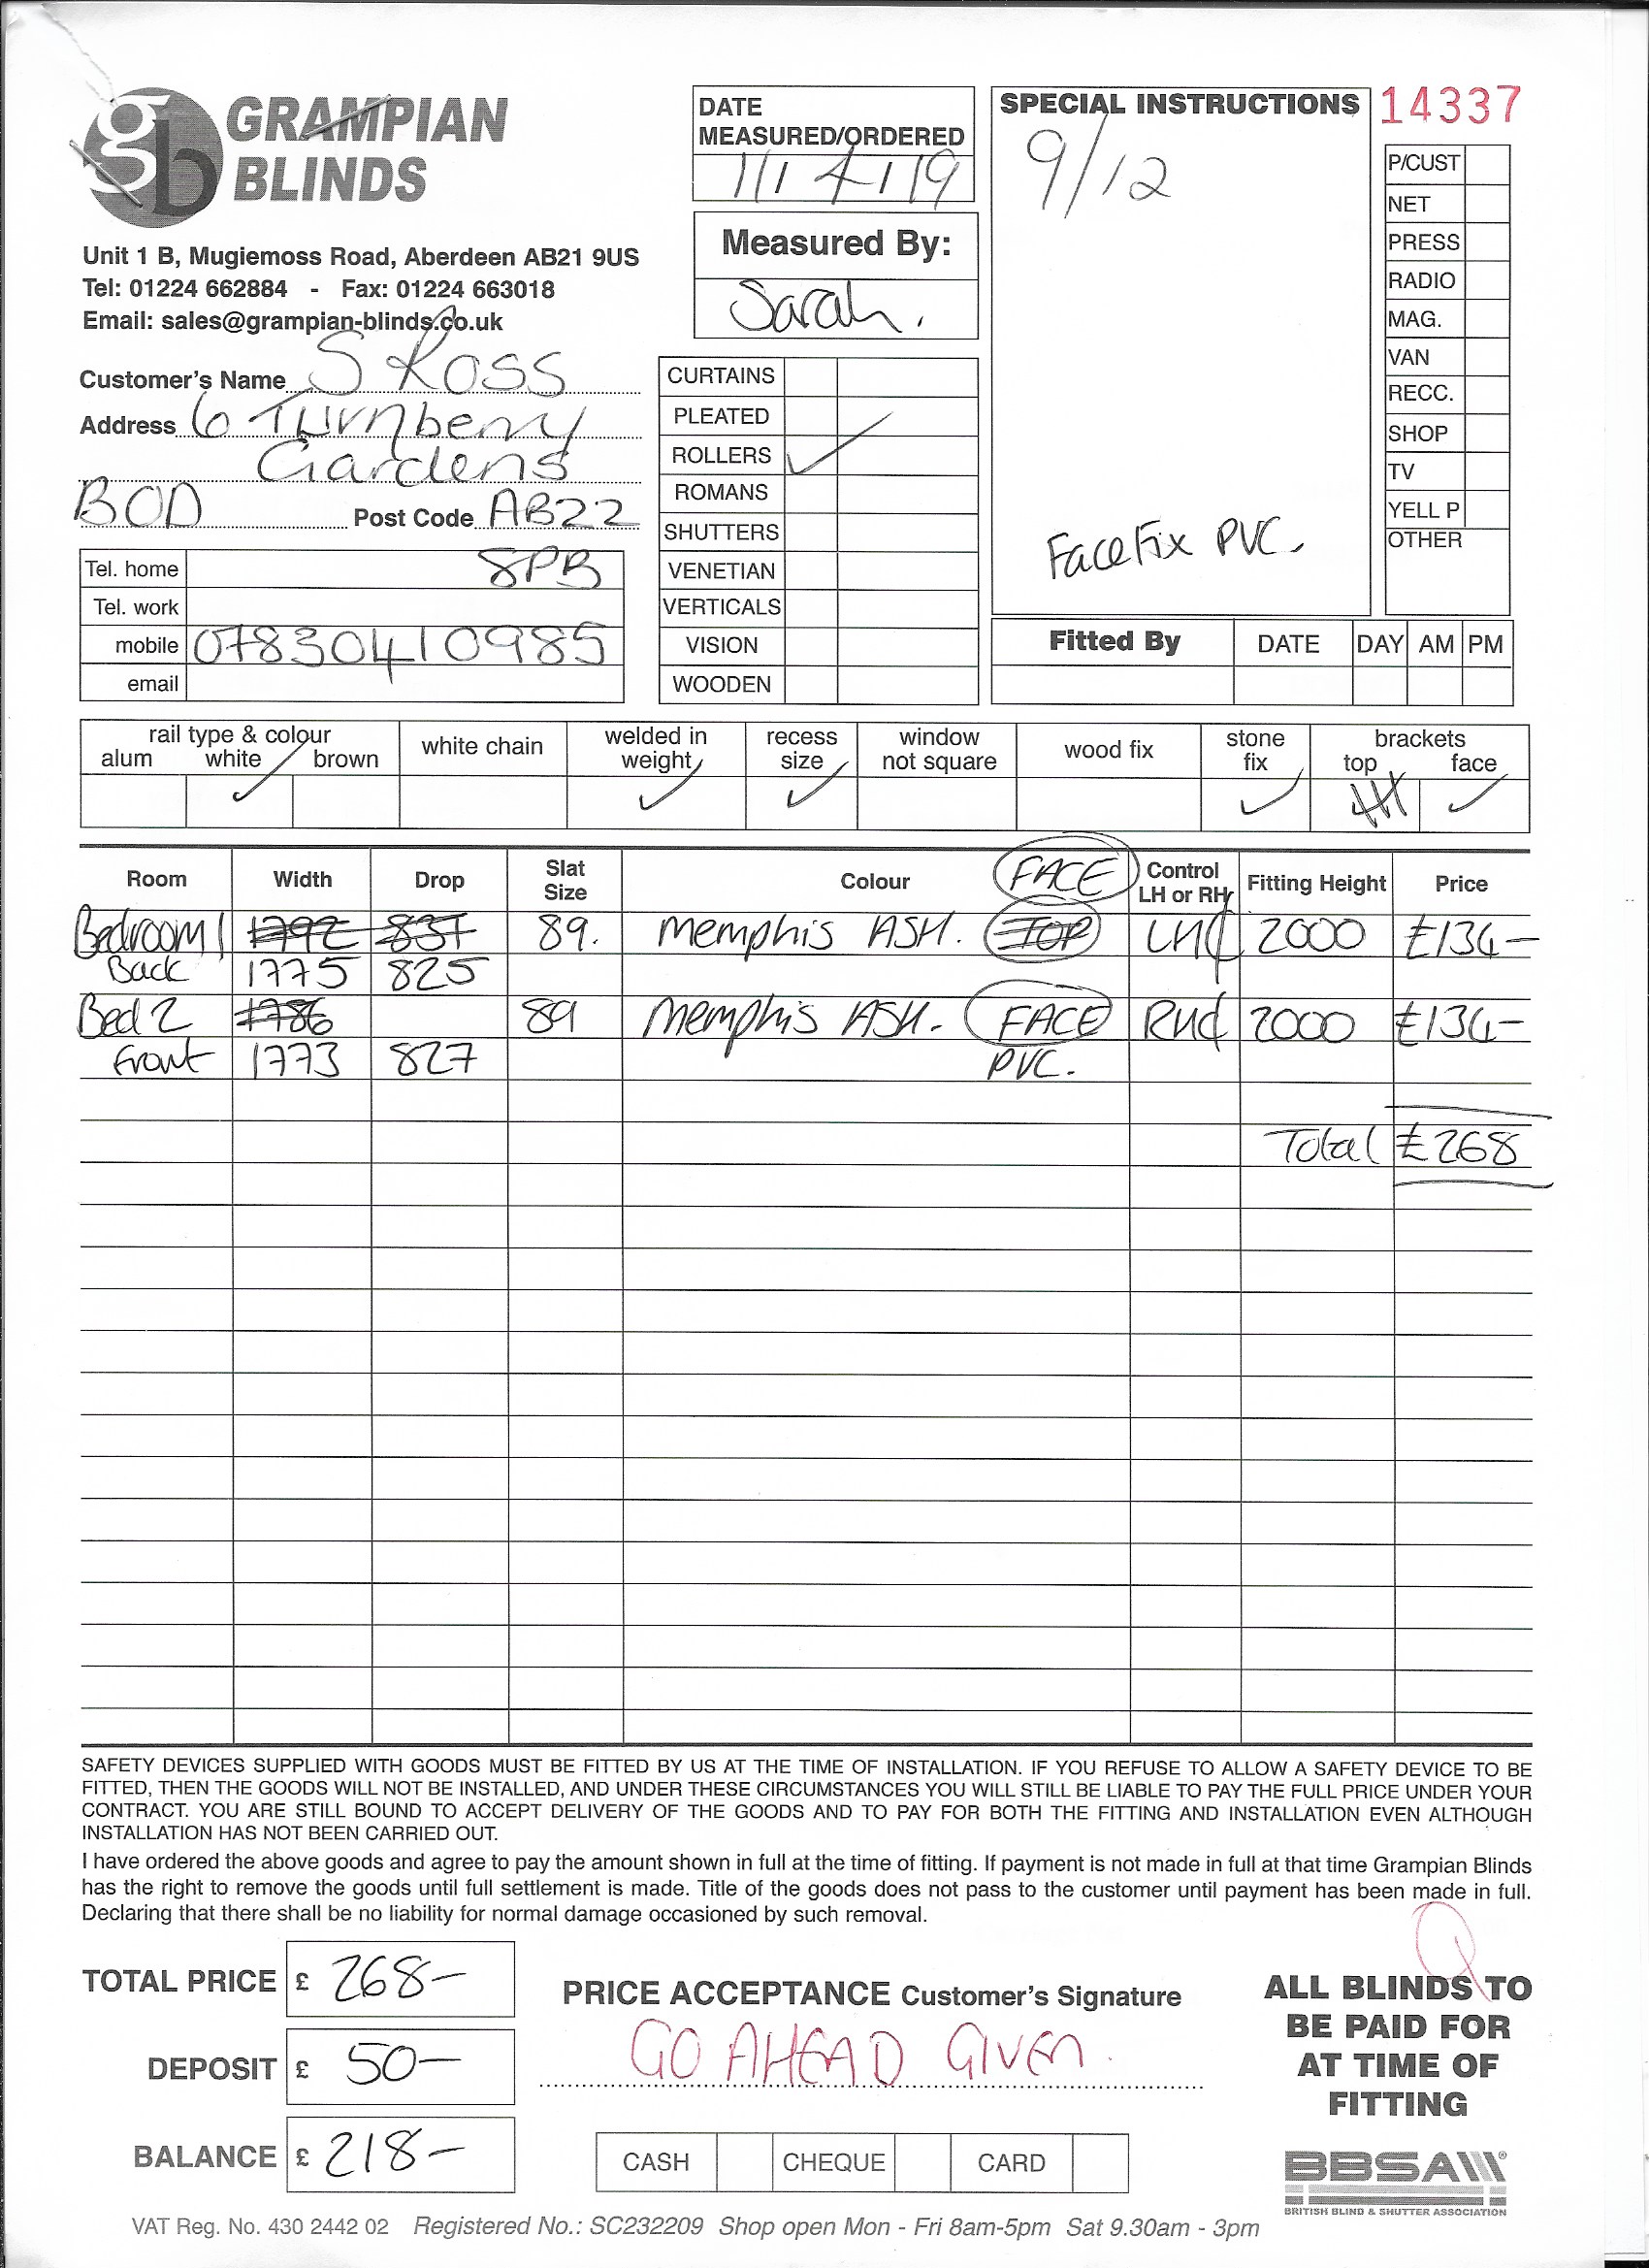 GRAMPIAN
BLINDS
Unit 1 B, Mugiemoss Road, Aberdeen AB21 9US
Tel: 01224 662884 - Fax: 01224 663018
Email: sales@grampian-blinds.co.uk
Customer's Name S Ross
Address 6 Turnberry
Gardens
BOD Post Code AB22
8PB
Tel. home
Tel. work
mobile 07830410985
email
DATE
MEASURED/ORDERED
11/4/19
Measured By:
Sarah.
CURTAINS
PLEATED
ROLLERS ✓
ROMANS
SHUTTERS
VENETIAN
VERTICALS
VISION
WOODEN
SPECIAL INSTRUCTIONS
9/12
Face Fix PVC.
14337
P/CUST
NET
PRESS
RADIO
MAG.
VAN
RECC.
SHOP
TV
YELL P
OTHER
Fitted By DATE DAY AM PM
rail type & colour
alum white brown white chain welded in weight recess size window not square wood fix stone fix brackets top face
✓ ✓ ✓ ✓ ✓
Room Width Drop Slat Size Colour FACE Control LH or RH Fitting Height Price
Bedroom 1 1792 837 89. Memphis ASH. TOP LHC 2000 £134-
Back 1775 825
Bed 2 1786 89 Memphis ASH. FACE RHC 2000 £134-
Front 1773 827 PVC.
Total £268
SAFETY DEVICES SUPPLIED WITH GOODS MUST BE FITTED BY US AT THE TIME OF INSTALLATION. IF YOU REFUSE TO ALLOW A SAFETY DEVICE TO BE
FITTED, THEN THE GOODS WILL NOT BE INSTALLED, AND UNDER THESE CIRCUMSTANCES YOU WILL STILL BE LIABLE TO PAY THE FULL PRICE UNDER YOUR
CONTRACT. YOU ARE STILL BOUND TO ACCEPT DELIVERY OF THE GOODS AND TO PAY FOR BOTH THE FITTING AND INSTALLATION EVEN ALTHOUGH
INSTALLATION HAS NOT BEEN CARRIED OUT.
I have ordered the above goods and agree to pay the amount shown in full at the time of fitting. If payment is not made in full at that time Grampian Blinds
has the right to remove the goods until full settlement is made. Title of the goods does not pass to the customer until payment has been made in full.
Declaring that there shall be no liability for normal damage occasioned by such removal.
TOTAL PRICE £ 268-
DEPOSIT £ 50-
BALANCE £ 218-
PRICE ACCEPTANCE Customer's Signature
GO AHEAD GIVEN.
CASH CHEQUE CARD
Q
ALL BLINDS TO
BE PAID FOR
AT TIME OF
FITTING
BBSA
BRITISH BLIND & SHUTTER ASSOCIATION
VAT Reg. No. 430 2442 02 Registered No.: SC232209 Shop open Mon - Fri 8am-5pm Sat 9.30am - 3pm